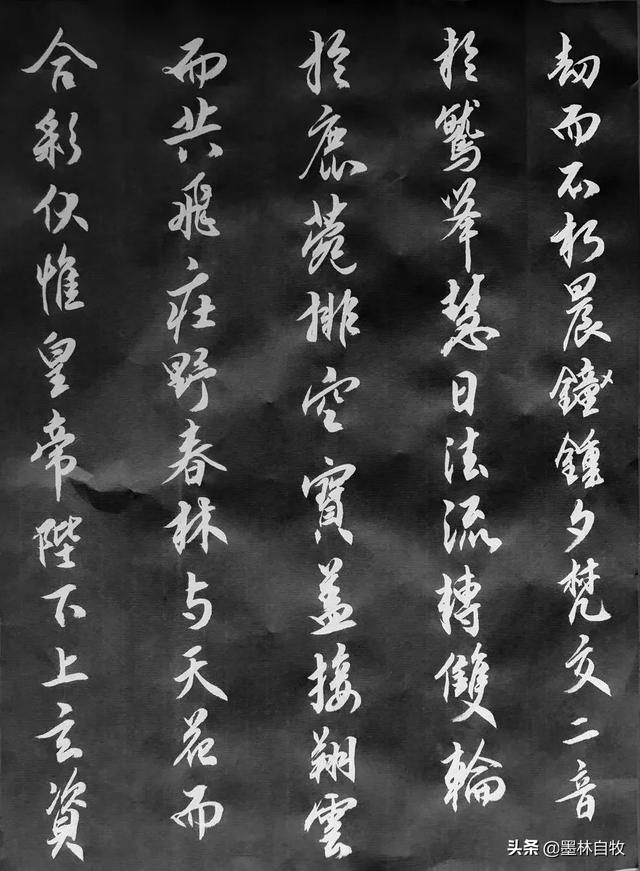 劫而不朽晨鐘鍾夕梵交二音
於鷲峯慧日法流轉雙輪
於鹿菀排空寶盖接翔雲
而共飛庄野春林与天花而
合彩伏惟皇帝陛下上玄資
头条 @墨林自牧